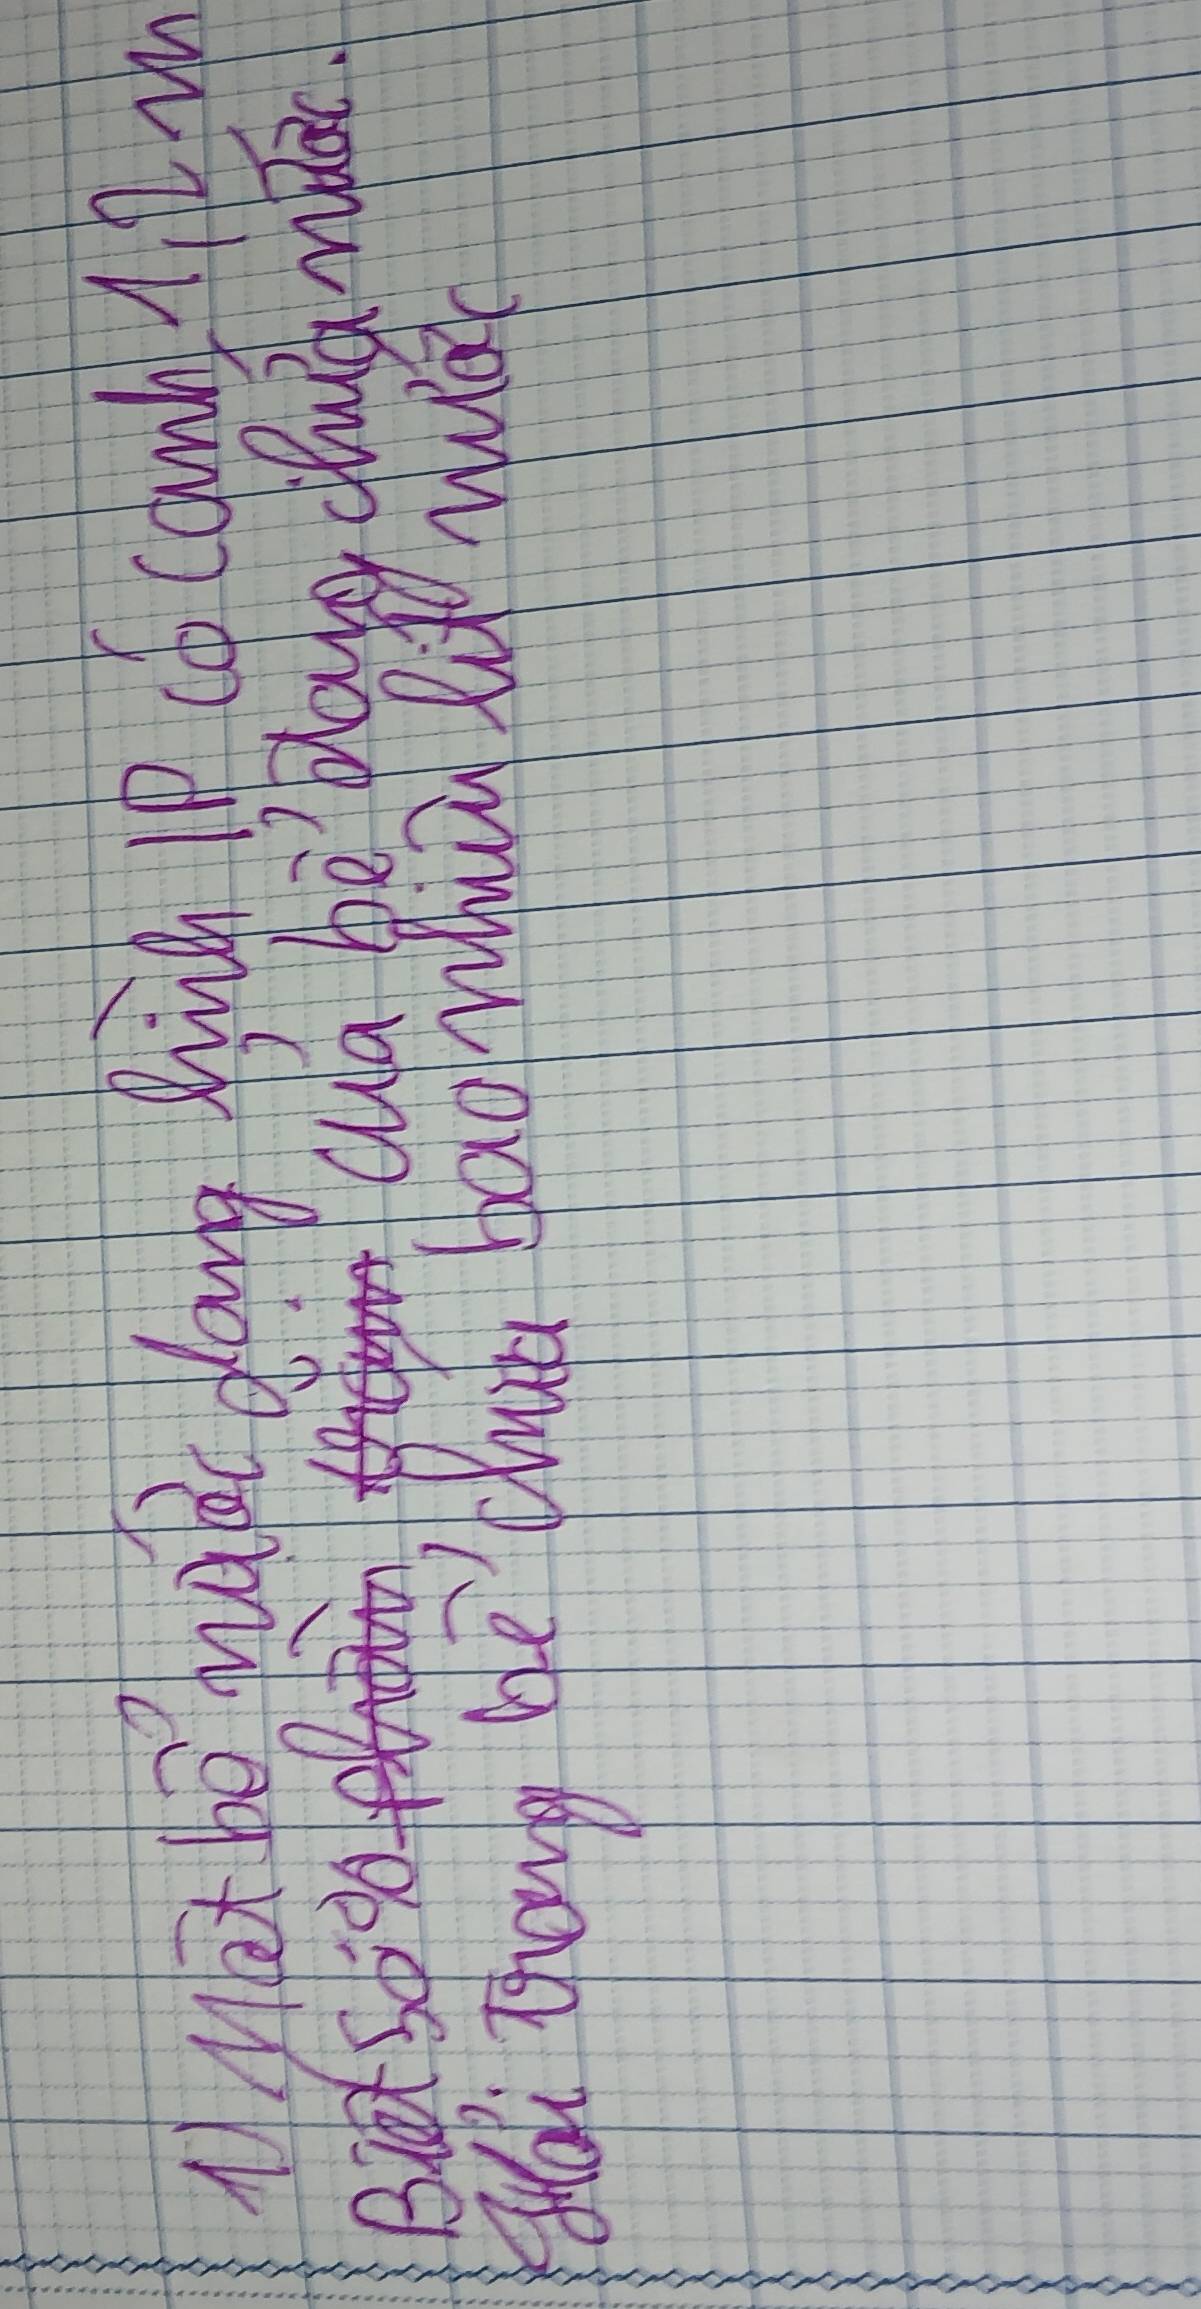 1) Một bể nước dạng hình lP có cạnh 1,2 m
Biết 50% phần trăm của bể đang chứa nước.
Hỏi trong bể chứa bao nhiêu lít nước